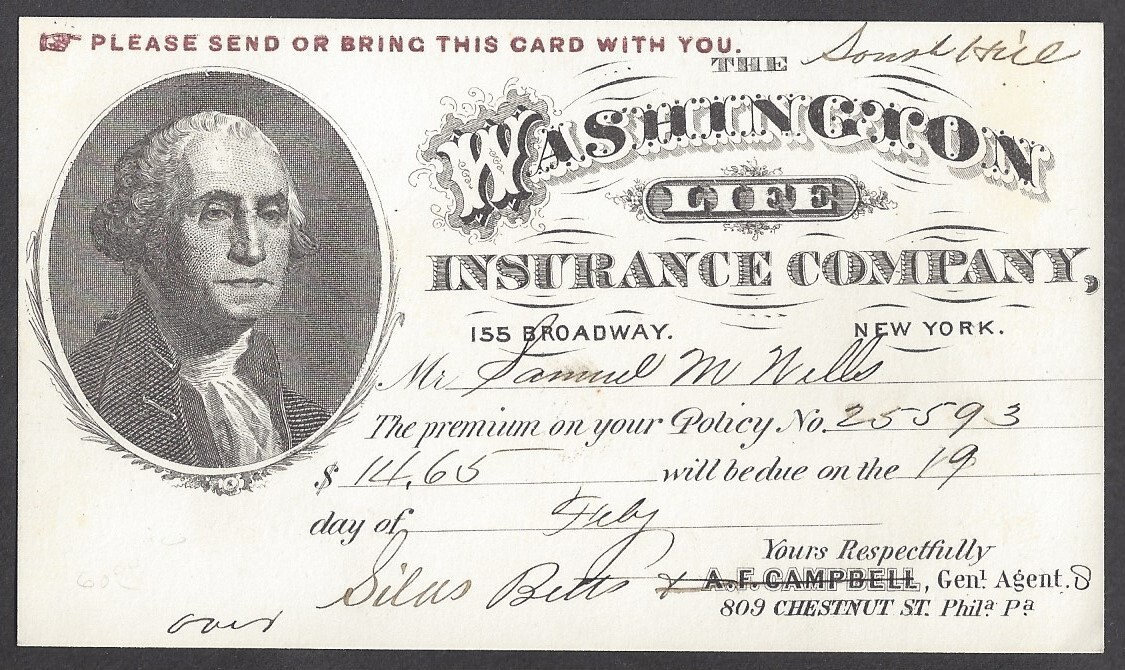 PLEASE SEND OR BRING THIS CARD WITH YOU.
THE
WASHINGTON
LIFE
INSURANCE COMPANY,
155 BROADWAY. NEW YORK.
Mr Samuel M Wills
The premium on your Policy No. 25593
$ 14.65 will be due on the 19
day of Feby
Yours Respectfully
Silas Betts
A.F. CAMPBELL, Genl Agent.
809 CHESTNUT ST. Phila Pa
over